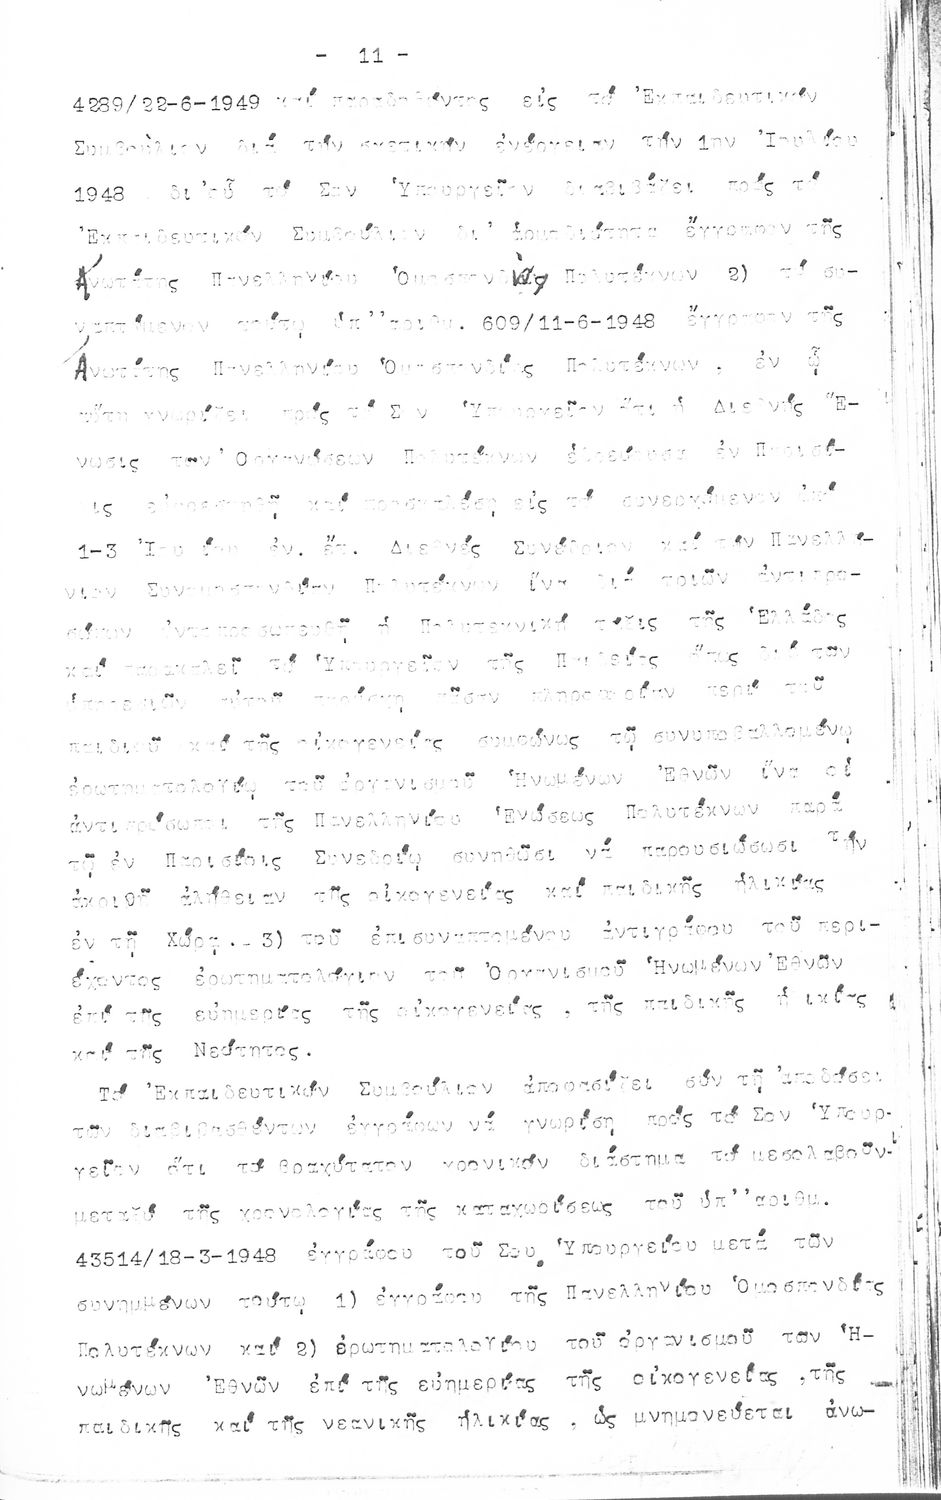 - 11 -
4289/22-6-1949 καί παραδοθέντος εἰς τό Ἐκπαιδευτικόν
Συμβούλιον διά τήν σχετικήν ἐνέργειαν τήν 1ην Ἰουλίου
1948 δι'οὗ τό Σον Ὑπουργεῖον διαβιβάζει πρός τό
Ἐκπαιδευτικόν Συμβούλιον δι' ἁρμοδιότητα ἔγγραφον τῆς
Ἀνωτάτης Πανελληνίου Ὁμοσπονδίας Πολυτέκνων 2) τό συ-
ναπτόμενον τούτῳ ὑπ''αριθμ. 609/11-6-1948 ἔγγραφον τῆς
Ἀνωτάτης Πανελληνίου Ὁμοσπονδίας Πολυτέκνων , ἐν ᾧ
αὕτη γνωρίζει πρός τό Σ ν Ὑπουργεῖον ὅτι ἡ Διεθνής Ἕ-
νωσις των Ὀργανώσεων Πολυτέκνων ἑδρεύουσα ἐν Παρισί-
ις εὐηρεστήθη καί προσκαλέση εἰς τό συνερχόμενον ἀπό
1-3 Ἰου ίου ἐν. ἔτ. Διεθνές Συνέδριον καί τήν Πανελλή-
νιον Συνομοσπονδίαν Πολυτέκνων ἵνα διά τριῶν ἀντιπρο-
σώπων ἀντιπροσωπευθῇ ἡ Πολυτεκνική τάξις τῆς Ἑλλάδος
καί παρακαλεῖ τό Ὑπουργεῖον τῆς Παιδείας ὅπως διά τῶν
ὑπηρεσιῶν αὐτοῦ παράσχῃ πᾶσαν πληροφορίαν περί τοῦ
παιδιοῦ καί τῆς οἰκογενείας συμφώνως τῷ συνυποβαλλομένῳ
ἐρωτηματολογίῳ τοῦ ὀργανισμοῦ Ἡνωμένων Ἐθνῶν ἵνα οἱ
ἀντιπρόσωποι τῆς Πανελληνίου Ἑνώσεως Πολυτέκνων παρά
τῷ ἐν Παρισίοις Συνεδρίῳ συνηθῶσι νά παρουσιάσωσι τήν
ἀκριβῆ ἀλήθειαν τῆς οἰκογενείας καί παιδικῆς ἡλικίας
ἐν τῇ Χώρᾳ.- 3) τοῦ ἐπισυναπτομένου ἀντιγράφου τοῦ περι-
έχοντος ἐρωτηματολόγιον τοῦ Ὀργανισμοῦ Ἡνωμένων Ἐθνῶν
ἐπί τῆς εὐημερίας τῆς οἰκογενείας , τῆς παιδικῆς ἡ ικίας
καί τῆς Νεότητος.
Τό Ἐκπαιδευτικόν Συμβούλιον ἀποφασίζει σύν τῇ ἀποδόσει
τῶν διαβιβασθέντων ἐγγράφων νά γνωρίση πρός τό Σον Ὑπουρ-
γεῖον ὅτι τό βραχύτατον χρονικόν διάστημα τό μεσολαβοῦν
μεταξύ τῆς χρονολογίας τῆς καταχωρίσεως τοῦ ὑπ''αριθμ.
43514/18-3-1948 ἐγγράφου τοῦ Σου Ὑπουργείου μετά τῶν
συνημμένων τούτῳ 1) ἐγγράφου τῆς Πανελληνίου Ὁμοσπονδίας
Πολυτέκνων καί 2) ἐρωτηματολογίου τοῦ ὀργανισμοῦ των Ἡ-
νωμένων Ἐθνῶν ἐπί τῆς εὐημερίας τῆς οἰκογενείας ,τῆς
παιδικῆς καί τῆς νεανικῆς ἡλικίας , ὡς μνημονεύεται ἀνω-